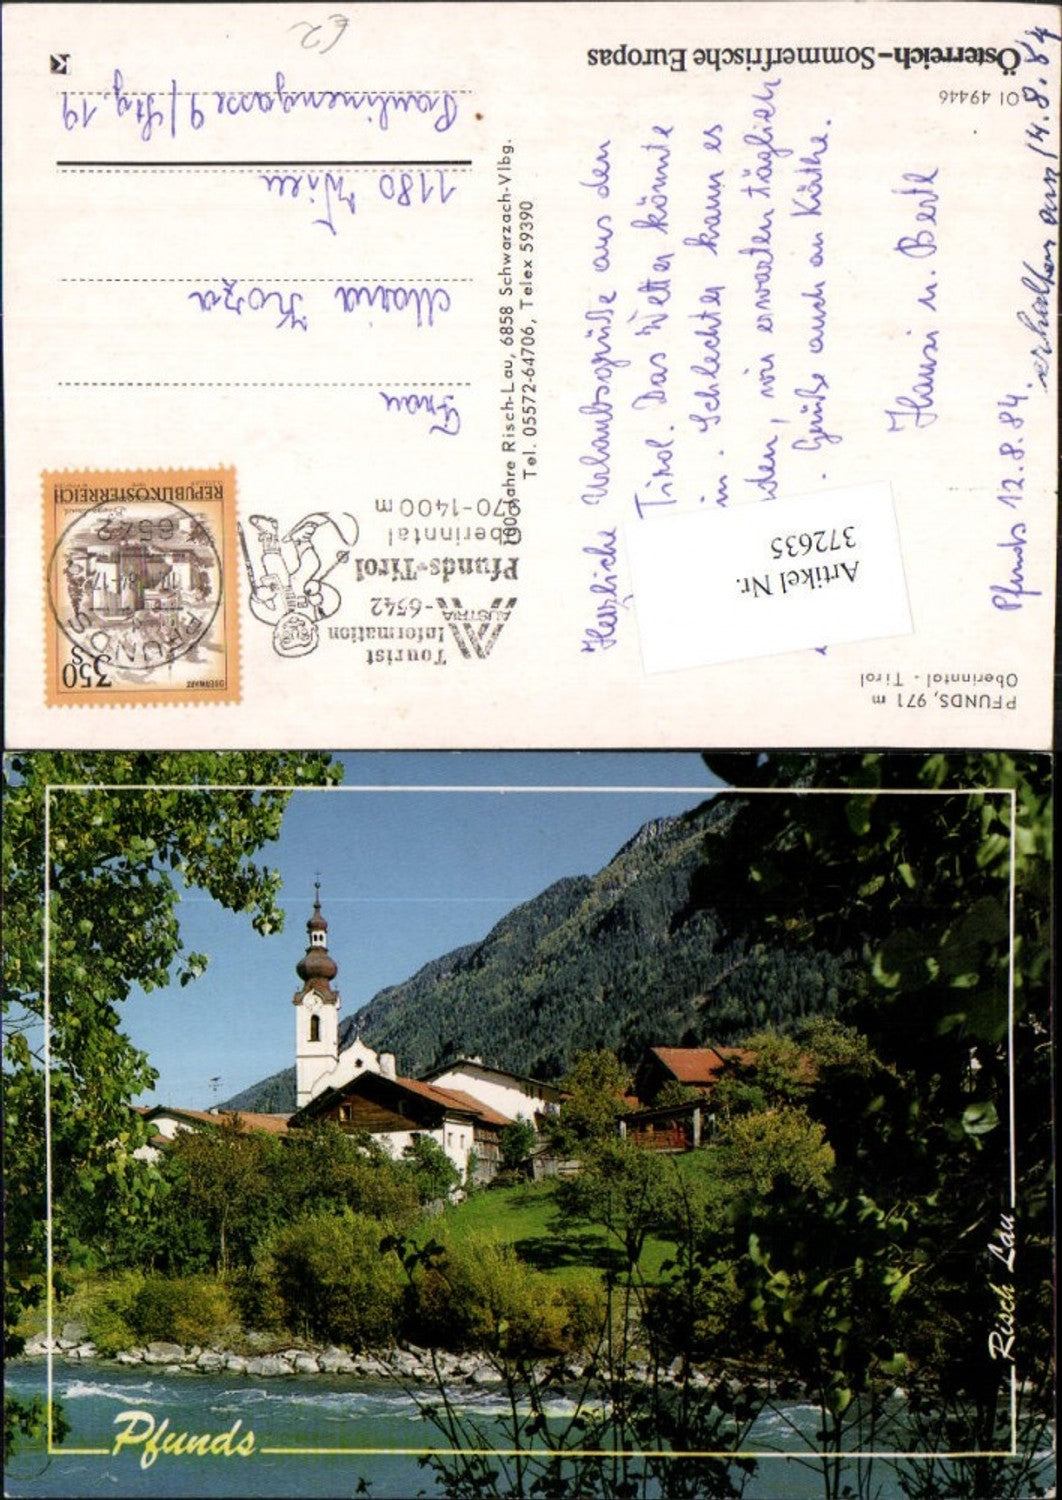 PFUNDS, 971 m
Oberinntal - Tirol
Pfunds 12.8.84.
erhalten am 14.8.84
Herzliche Urlaubsgrüße aus den
Tirol. Das Wetter könnte
in. Schlechter kann es
den, wir erwarten täglich
. Grüße auch an Käthe.
Hansi u. Bertl
Artikel Nr.
372635
01 49446
Österreich-Sommerfrische Europas
100 Jahre Risch-Lau, 6858 Schwarzach-Vlbg.
Tel. 05572-64706, Telex 59390
Tourist
Information
AUSTRIA
-6542
Pfunds-Tirol
Oberinntal
970-1400 m
OBERWART
3.50 S
PFUNDS
6542
REPUBLIK ÖSTERREICH
Frau
Maria Koza
1180 Wien
Paulinengasse 9/Stg. 19
€2
Pfunds
Risch Lau